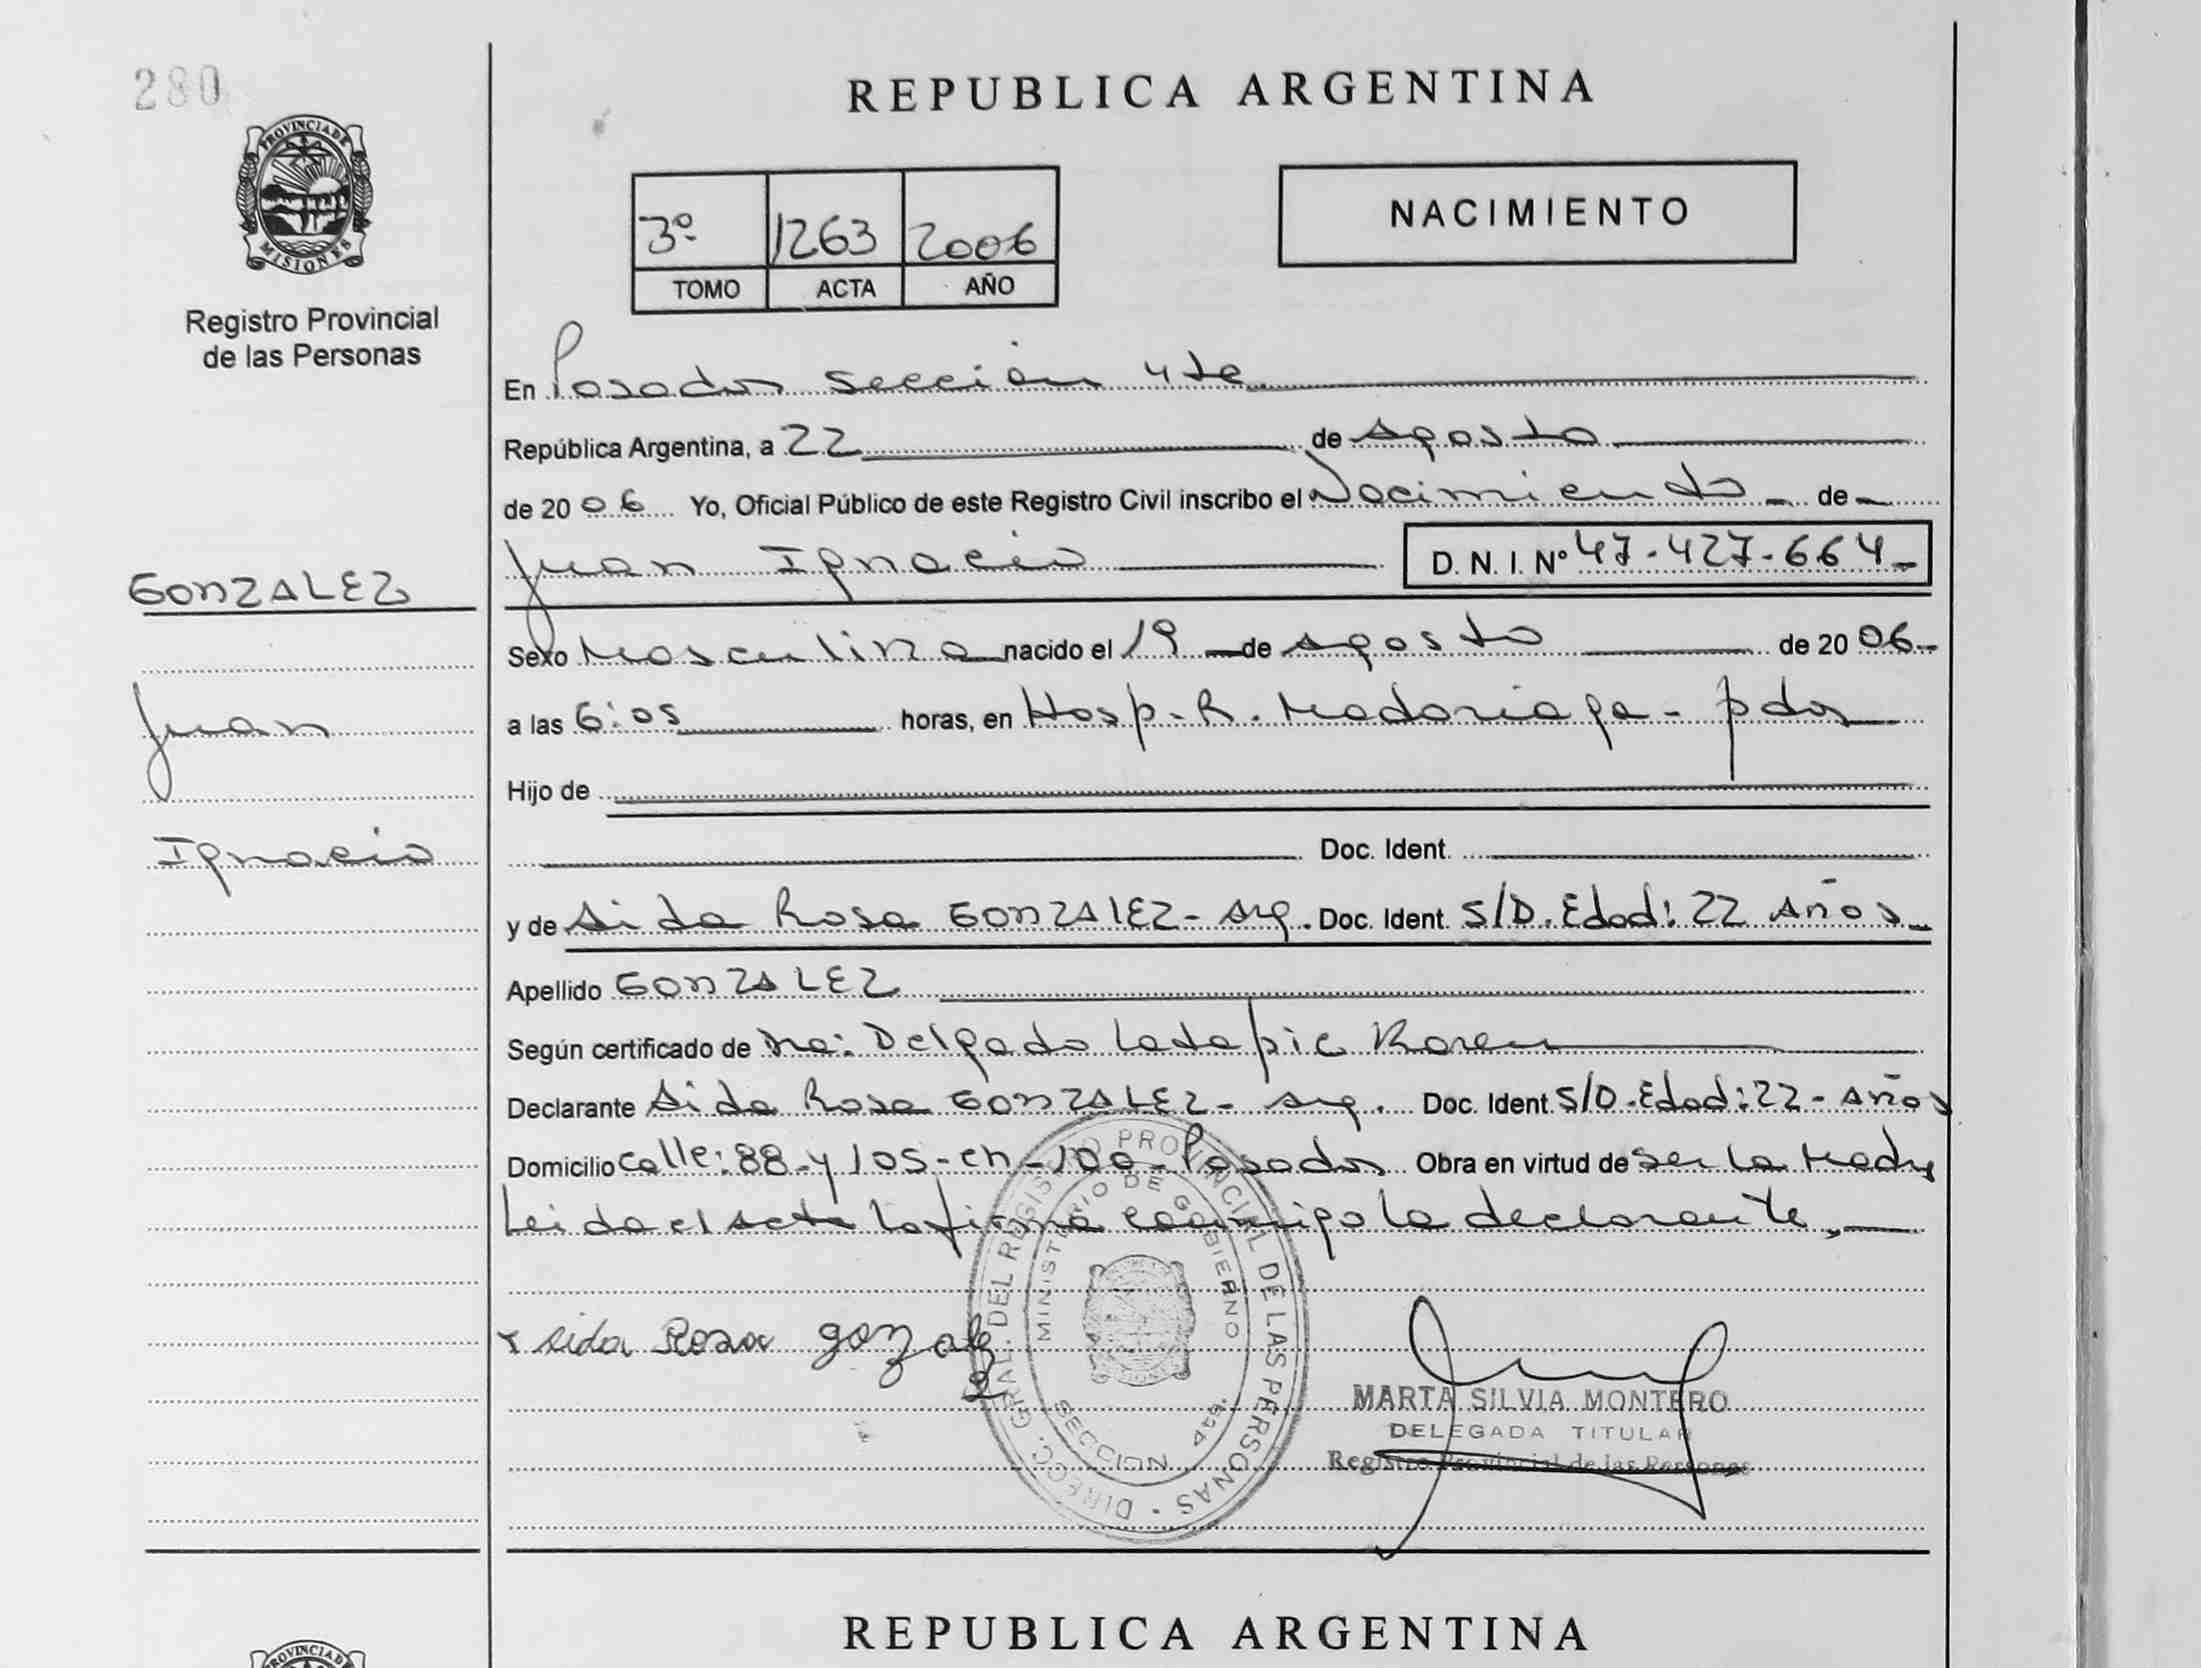 280
PROVINCIA DE
MISIONES
Registro Provincial
de las Personas
GONZALEZ
Juan
Ignacio
REPUBLICA ARGENTINA
3º 1263 2006
TOMO ACTA AÑO
NACIMIENTO
En Posadas sección 4ta
República Argentina, a 22 de Agosto
de 2006 Yo, Oficial Público de este Registro Civil inscribo el Nacimiento de
Juan Ignacio D. N. I. Nº 47.427.664
Sexo Masculino nacido el 19 de Agosto de 2006
a las 6:05 horas, en Hosp. R. Madariaga - pdas
Hijo de
Doc. Ident.
y de Aida Rosa GONZALEZ - Arg. Doc. Ident. S/D. Edad: 22 Años
Apellido GONZALEZ
Según certificado de Dra: Delgado Ladapic Karen
Declarante Aida Rosa GONZALEZ - Arg. Doc. Ident. S/D. Edad: 22 - Años
Domicilio Calle: 88 y 105 - ch - 100 - Posadas Obra en virtud de ser la Madre
Leida el acta la firma conmigo la declarante,
x Aida Rosa gozalez
DIRECC. GRAL. DEL REGISTRO PROVINCIAL DE LAS PERSONAS
MINISTERIO DE GOBIERNO
SECCION 4ta.
MARTA SILVIA MONTERO
DELEGADA TITULAR
Registro Provincial de las Personas
REPUBLICA ARGENTINA
PROVINCIA DE